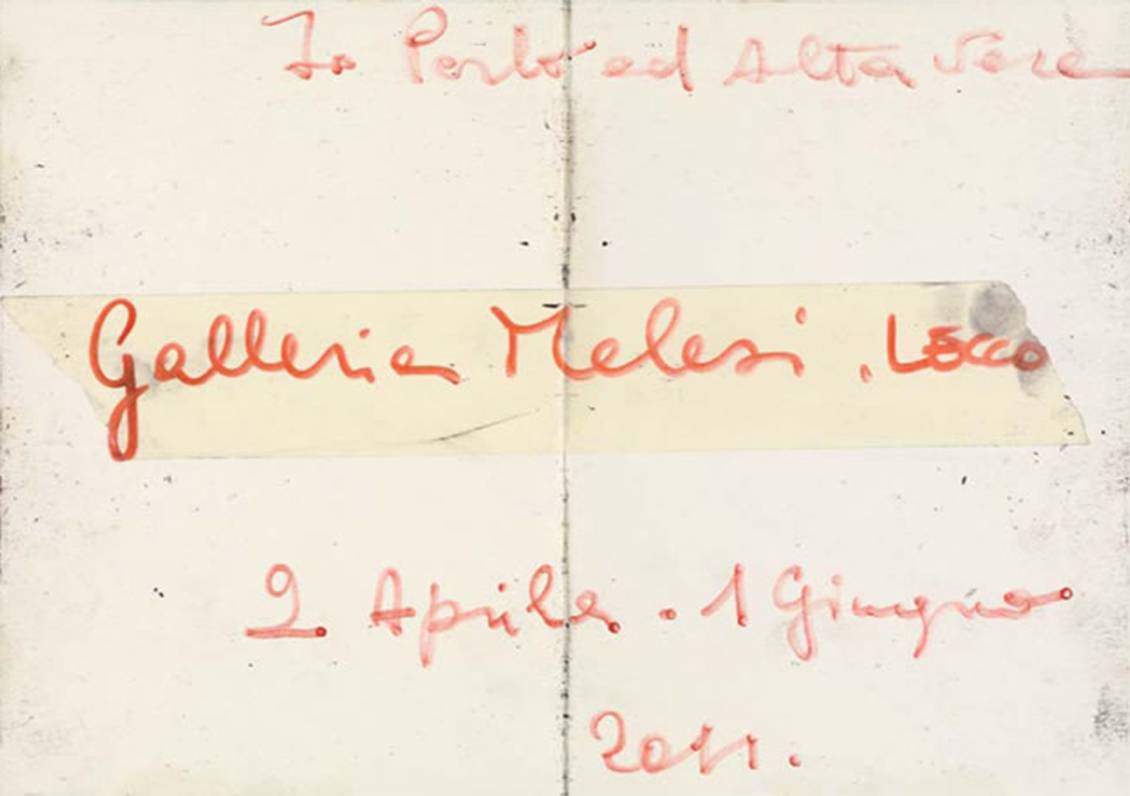 Io Parlo ad Alta voce
Galleria Melesi . LECCO
2 Aprile . 1 Giugno
2011.